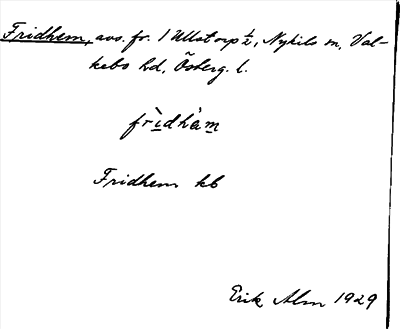 Fridhem, avs. fr. 1 Ullstorp ½, Nykils sn, Val-
kebo hd, Österg. l.
fr̀idhá̀m
Fridhem kb
Erik Alm 1929